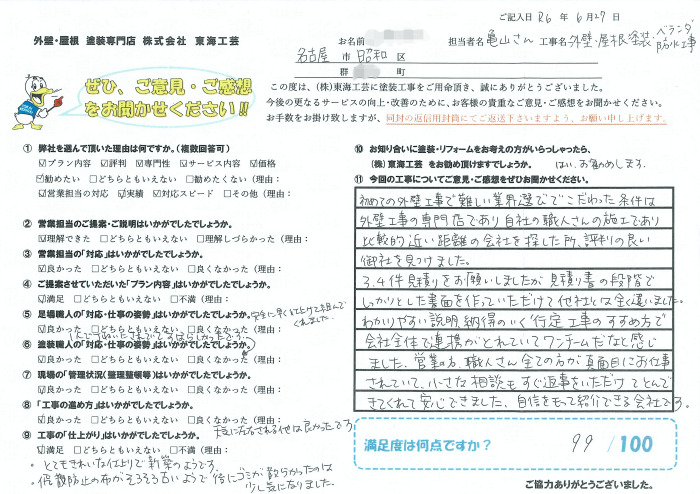 ご記入日 R6 年 6月27日
外壁・屋根 塗装専門店 株式会社 東海工芸
お名前
担当者名 亀山さん 工事名 外壁・屋根塗装、ベランダ防水工事
名古屋 市 昭和 区
郡 町
ぜひ、ご意見・ご感想
をお聞かせください!!
この度は、(株)東海工芸に塗装工事をご用命頂き、誠にありがとうございました。
今後の更なるサービスの向上・改善のために、お客様の貴重なご意見・ご感想をお聞かせください。
お手数をお掛け致しますが、同封の返信用封筒にてご返送下さいますよう、お願い申し上げます。
① 弊社を選んで頂いた理由は何ですか。(複数回答可)
☑プラン内容 ☑評判 ☑専門性 ☑サービス内容 ☑価格
☑勧めたい □どちらともいえない □勧めたくない(理由:
☑営業担当の対応 ☑実績 ☑対応スピード □その他(理由:
② 営業担当のご提案・ご説明はいかがでしたでしょうか。
☑理解できた □どちらともいえない □理解しづらかった(理由:
③ 営業担当の「対応」はいかがでしたでしょうか。
☑良かった □どちらともいえない □良くなかった(理由:
④ ご提案させていただいた「プラン内容」はいかがでしたでしょうか。
☑満足 □どちらともいえない □不満(理由:
⑤ 足場職人の「対応・仕事の姿勢」はいかがでしたでしょうか。
☑良かった □どちらともいえない □良くなかった(理由:
⑥ 塗装職人の「対応・仕事の姿勢」はいかがでしたでしょうか。
☑良かった □どちらともいえない □良くなかった(理由:
⑦ 現場の「管理状況(整理整頓等)はいかがでしたでしょうか。
☑良かった □どちらともいえない □良くなかった(理由:
⑧ 「工事の進め方」はいかがでしたでしょうか。
☑良かった □どちらともいえない □良くなかった(理由:
⑨ 工事の「仕上がり」はいかがでしたでしょうか。
☑満足 □どちらともいえない □不満(理由:
・とてもきれいな仕上りで新築のようです。
・保護防止の布がそろそろ古いようで後にゴミが散らかったのは
少し気になりました。
⑩ お知り合いに塗装・リフォームをお考えの方がいらっしゃったら、
(株)東海工芸 をお勧め頂けますでしょうか。 はい、お勧めします。
⑪ 今回の工事についてご意見・ご感想をお聞かせください。
初めての外壁工事で難しい業界選びでこだわった条件は
外壁工事の専門店であり自社の職人さんの施工であり
比較的近い距離の会社を探した所、評判の良い
御社を見つけました。
3.4件見積りをお願いしましたが見積り書の段階で
しっかりとした書面を作っていただけて他社とは全く違いました。
わかりやすい説明、納得のいく行定 工事のすすめ方で
会社全体で連携がとれていてワンチームだなと感じ
ました。営業の方、職人さん全ての方が真面目にお仕事
されていて、小さな相談もすぐ返事をいただけてとんで
きてくれて安心できました。自信をもって紹介できる会社です。
満足度は何点ですか? 99 /100
ご協力ありがとうございました。